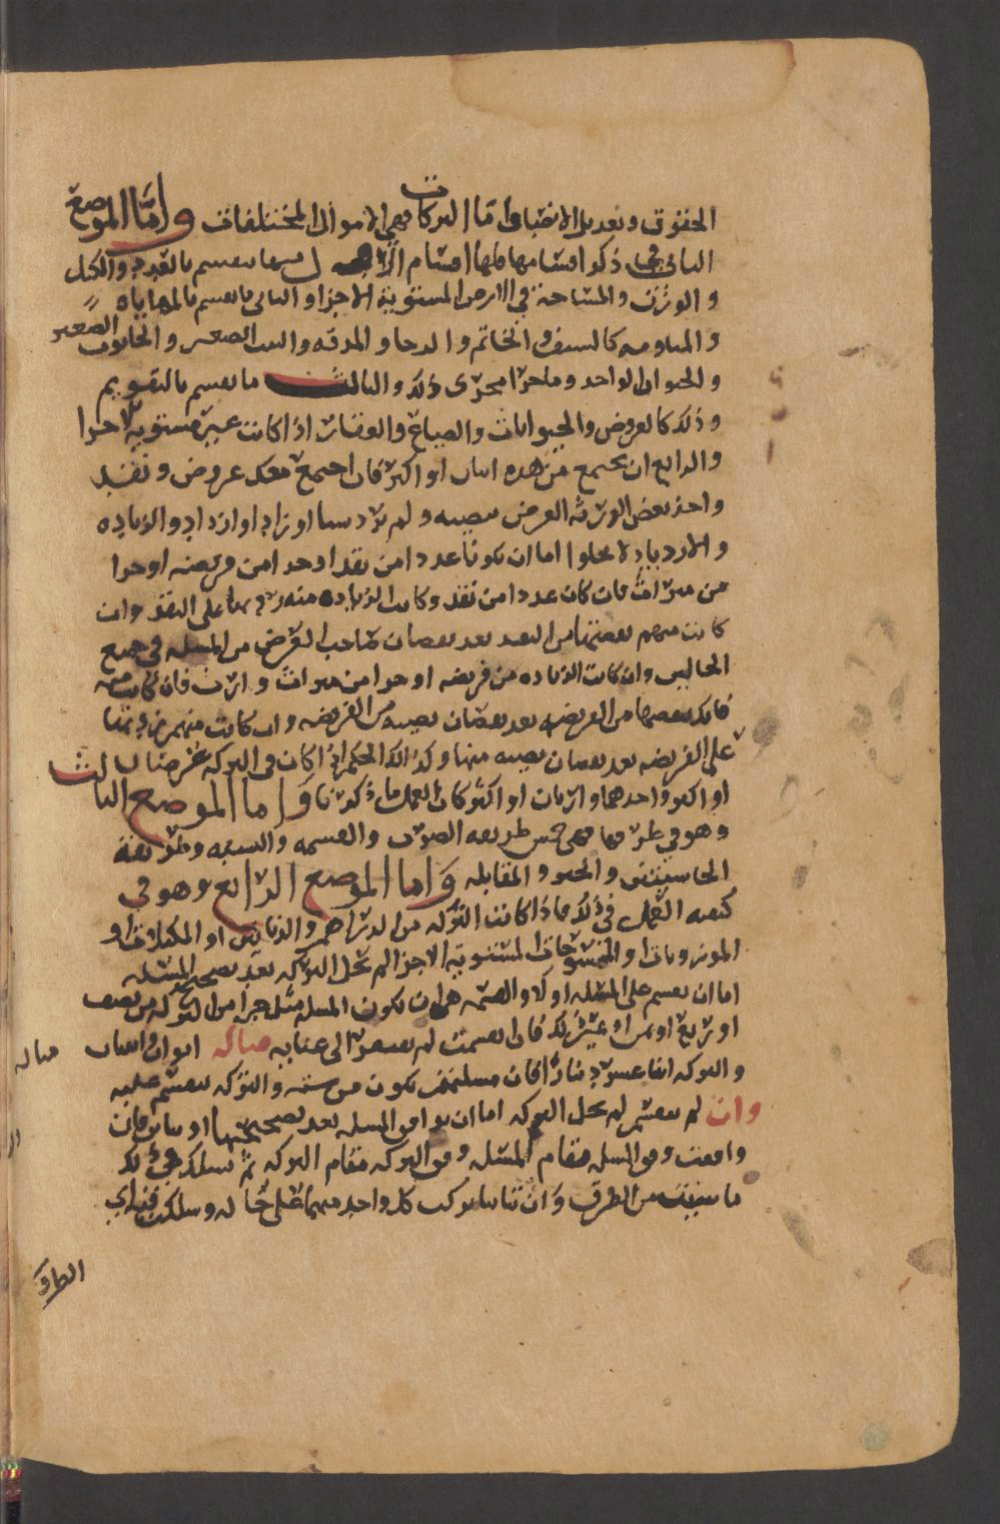 الحقوق وتعديل الانصبا واما التركات فهي الاموال المختلفات واما الموضع
الثاني في ذكر اقسامها فلها اقسام الاول منها ما يقسم بالعدد والكيل
والوزن والمساحة في الارض المستوية الاجزا والثاني ما يقسم بالمهاياه
كالسيف والخاتم والرحا والبيت الصغير والحانوت الصغير
والحيوان الواحد وما جرا مجرى ذلك والثالث ما يقسم بالتقويم
وذلك كالعروض والحيوانات والضياع والعقارات اذا كانت غير مستوية الاجزا
والرابع ان يجتمع من هذه اثنان او اكثر فان اجتمع معك عروض ونقد
واخذ بعض الورثة العرض بنصيبه ولم يزد شيا او زاد او ازداد والزياده
والازدياد لا يخلوا اما ان يكونا عددا من نقد او جزا من فريضه او جزا
من ميراث فان كان عددا من نقد وكانت الزياده منه زدتها على النقد وان
كانت منهم نقصتها من النقد بعد نقصان صاحب العرض من المسله في جميع
الحالين وان كانت الزياده من فريضه او جزا من ميراث وارث فان كانت منه
فانك تنقصها من الفريضه بعد نقصان نصيبه من الفريضه وان كانت منهم زدتها
على الفريضه بعد نقصان نصيبه منها وكذلك الحكم اذا كان في التركه عرضان
او اكثر واحدهما وارثان او اكثر كان العمل ما ذكرنا واما الموضع الثالث
وهو في طرقها فهي خمس طريقه الضرب والقسمه والنسبه وطريقة
الحاسبين والجبر والمقابله واما الموضع الرابع وهو في
كيفيه العمل في ذلك فاذا كانت التركه من الدراهم والدنانير او المكيلات او
الموزونات او الممسوحات المستوية الاجزا لم تخل التركه بعد تصحيح المسله
اما ان تقسم على المسله او لا والقسمه هي ان تكون المسله مثل جزا من التركه من نصف
او ربع او ثمن او عشر ذلك فان انقسمت لم تفتقر الى عنايه مثاله ابوان وابنتان
والتركه اثنا عشر دينارا فان مسلتهم تكون من سته والتركه تنقسم عليه
وان لم تنقسم لم تخل التركه اما ان توافق المسله بعد تصحيحها او تباين فان
وافقت وفق المسله مقام المسله ووفق التركه مقام التركه ثم تسلك في ذلك
ما شيت من الطرق وان تباينا تركت كل واحد منهما على حاله وسلكت فيه اي
الطرق
مثاله